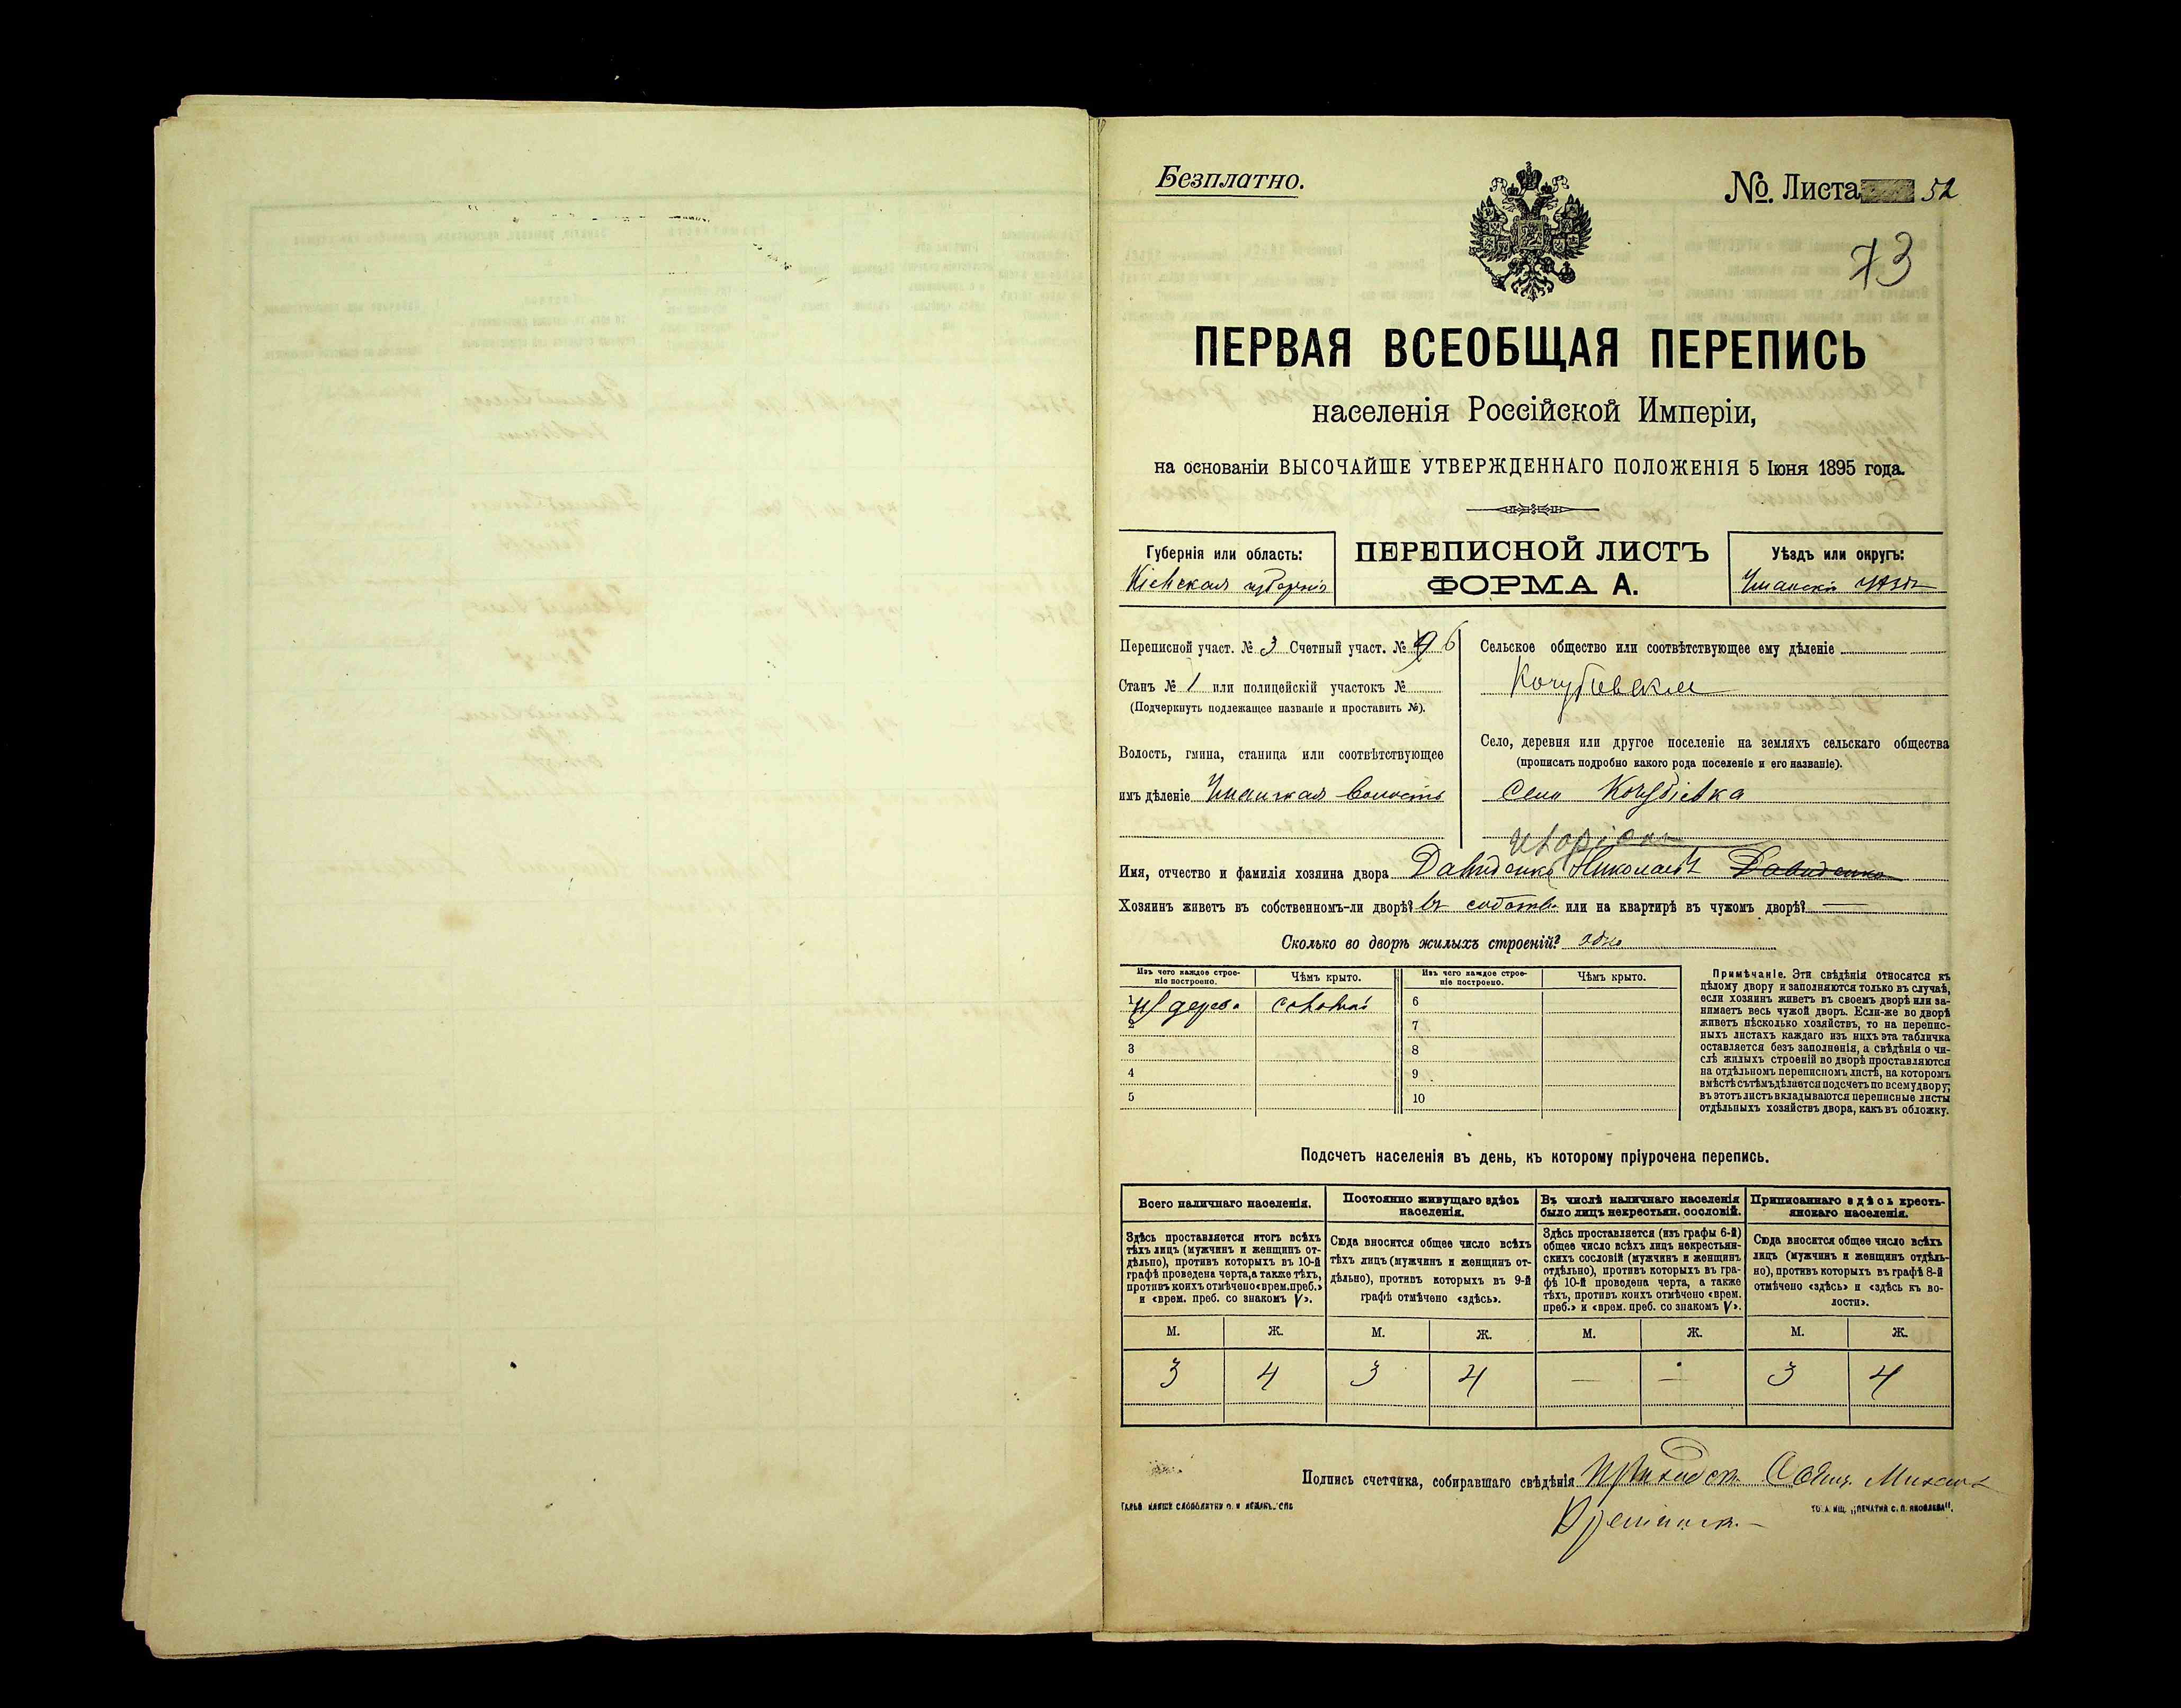 Безплатно.
№. Листа 52
73
ПЕРВАЯ ВСЕОБЩАЯ ПЕРЕПИСЬ
населенія Россійской Имперіи,
на основаніи ВЫСОЧАЙШЕ УТВЕРЖДЕННАГО ПОЛОЖЕНІЯ 5 Іюня 1895 года.
Губернія или область:
Кіевская губернія
ПЕРЕПИСНОЙ ЛИСТЪ
ФОРМА А.
Уѣздъ или округъ:
Уманскій уѣздъ
Переписной участ. № 3 Счетный участ. № 6
Станъ № 1 или полицейскій участокъ №
(Подчеркнуть подлежащее названіе и проставить №).
Волость, гмина, станица или соотвѣтствующее
имъ дѣленіе Уманская волость
Сельское общество или соотвѣтствующее ему дѣленіе
Кочубіевское
Село, деревня или другое поселеніе на земляхъ сельскаго общества
(прописать подробно какого рода поселеніе и его названіе).
Село Кочубіевка
Имя, отчество и фамилія хозяина двора Давиденко Николаевъ Давиденко
Хозяинъ живетъ въ собственномъ-ли дворѣ? въ собств. или на квартирѣ въ чужомъ дворѣ? —
Сколько во дворѣ жилыхъ строеній? одно
Изъ чего каждое строе-
ніе построено.
Чѣмъ крыто.
Изъ чего каждое строе-
ніе построено.
Чѣмъ крыто.
1 изъ дерева соломой
2
3
4
5
6
7
8
9
10
Примѣчаніе. Эти свѣдѣнія относятся къ
цѣлому двору и заполняются только въ случаѣ,
если хозяинъ живетъ въ своемъ дворѣ или за-
нимаетъ весь чужой дворъ. Если-же во дворѣ
живетъ нѣсколько хозяйствъ, то на перепис-
ныхъ листахъ каждаго изъ нихъ эта табличка
оставляется безъ заполненія, а свѣдѣнія о чи-
слѣ жилыхъ строеній во дворѣ проставляются
на отдѣльномъ переписномъ листѣ, на которомъ
вмѣстѣ съ тѣмъ дѣлается подсчетъ по всему двору;
въ этотъ листъ вкладываются переписные листы
отдѣльныхъ хозяйствъ двора, какъ въ обложку.
Подсчетъ населенія въ день, къ которому пріурочена перепись.
Всего наличнаго населенія.
Здѣсь проставляется итогъ всѣхъ
тѣхъ лицъ (мужчинъ и женщинъ от-
дѣльно), противъ которыхъ въ 10-й
графѣ проведена черта, а также тѣхъ,
противъ коихъ отмѣчено «врем. преб.»
и «врем. преб. со знакомъ V».
Постоянно живущаго здѣсь
населенія.
Сюда вносится общее число всѣхъ
тѣхъ лицъ (мужчинъ и женщинъ от-
дѣльно), противъ которыхъ въ 9-й
графѣ отмѣчено «здѣсь».
Въ числѣ наличнаго населенія
было лицъ некрестьян. сословій.
Здѣсь проставляется (изъ графы 6-й)
общее число всѣхъ лицъ некрестьян-
скихъ сословій (мужчинъ и женщинъ
отдѣльно), противъ которыхъ въ гра-
фѣ 10-й проведена черта, а также
тѣхъ, противъ коихъ отмѣчено «врем.
преб.» и «врем. преб. со знакомъ V».
Приписаннаго здѣсь кресть-
янскаго населенія.
Сюда вносится общее число всѣхъ
лицъ (мужчинъ и женщинъ отдѣль-
но), противъ которыхъ въ графѣ 8-й
отмѣчено «здѣсь» и «здѣсь къ во-
лости».
М. Ж. М. Ж. М. Ж. М. Ж.
3 4 3 4 — — 3 4
Подпись счетчика, собиравшаго свѣдѣнія